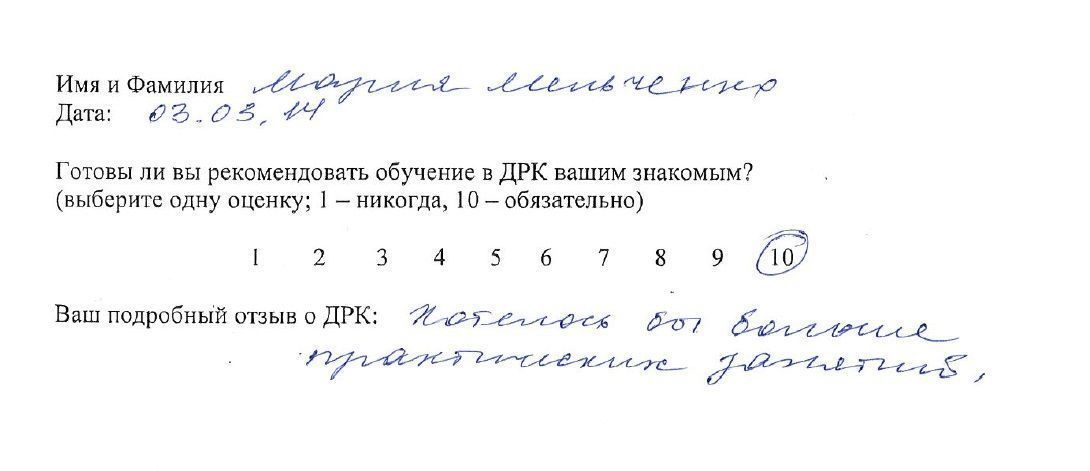 Имя и Фамилия Мария Мельченко
Дата: 03.03.14
Готовы ли вы рекомендовать обучение в ДРК вашим знакомым?
(выберите одну оценку; 1 – никогда, 10 – обязательно)
1 2 3 4 5 6 7 8 9 10
Ваш подробный отзыв о ДРК: Хотелось бы больше
практических занятий,